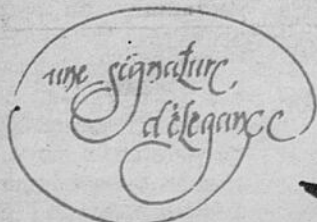 une signature
d'élégance